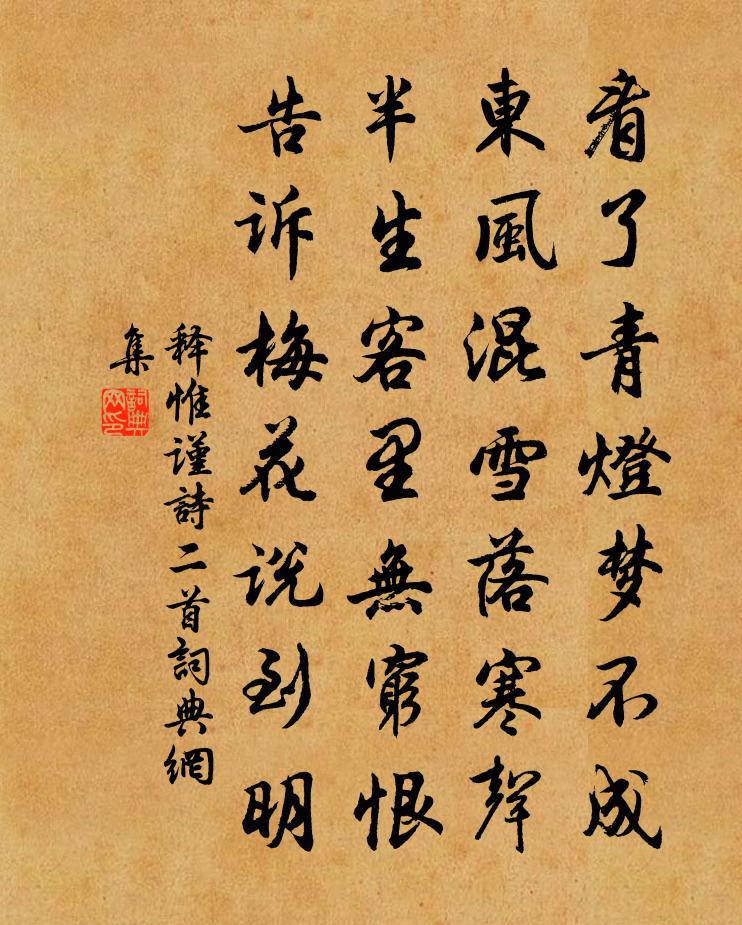 看了青燈梦不成
東風混雪落寒聲
半生客里無窮恨
告诉梅花说到明
释惟谨詩二首詞典網
集
詞典
网印